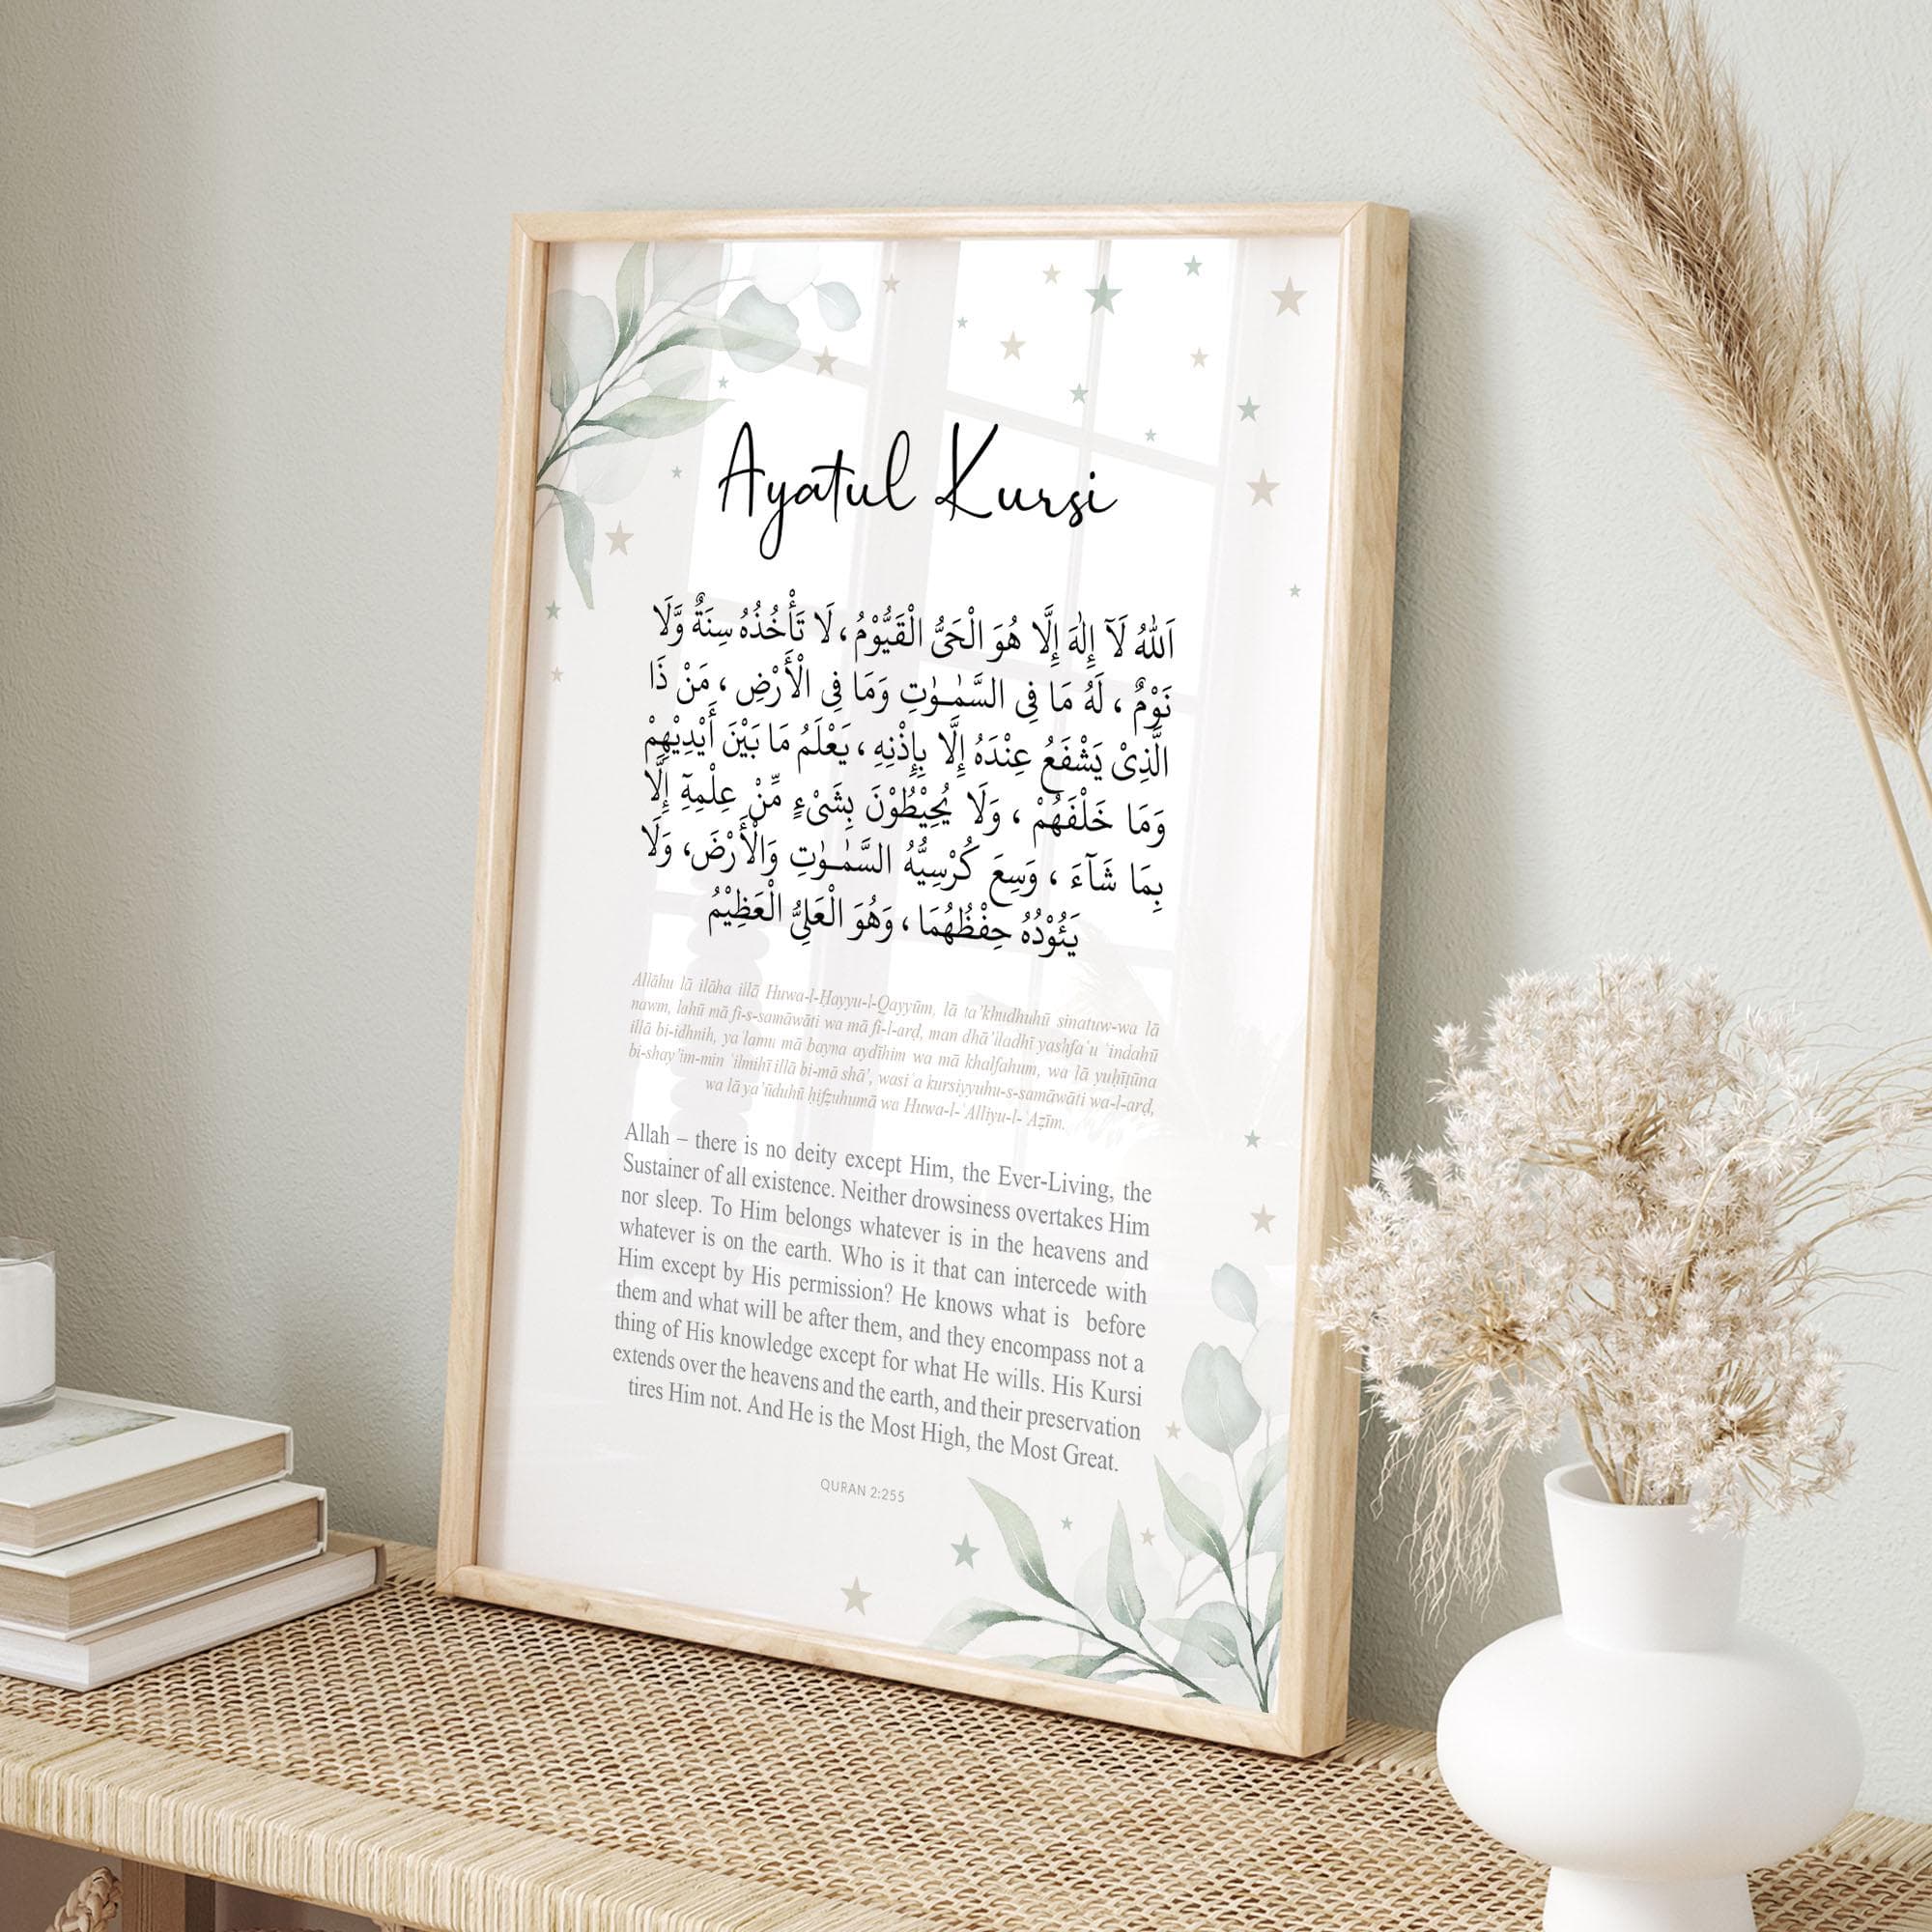 Ayatul Kursi
اَللّٰهُ لَآ إِلٰهَ إِلَّا هُوَ الْحَىُّ الْقَيُّوْمُ ، لَا تَأْخُذُهُ سِنَةٌ وَّلَا
نَوْمٌ ، لَهُ مَا فِى السَّمٰـوٰتِ وَمَا فِى الْأَرْضِ ، مَنْ ذَا
الَّذِىْ يَشْفَعُ عِنْدَهُ إِلَّا بِإِذْنِهِ ، يَعْلَمُ مَا بَيْنَ أَيْدِيْهِمْ
وَمَا خَلْفَهُمْ ، وَلَا يُحِيْطُوْنَ بِشَىْءٍ مِّنْ عِلْمِهٓ إِلَّا
بِمَا شَآءَ ، وَسِعَ كُرْسِيُّهُ السَّمٰـوٰتِ وَالْأَرْضَ، وَلَا
يَئُوْدُهُ حِفْظُهُمَا ، وَهُوَ الْعَلِىُّ الْعَظِيْمُ
Allāhu lā ilāha illā Huwa-l-Ḥayyu-l-Qayyūm, lā ta'khudhuhū sinatuw-wa lā
nawm, lahū mā fi-s-samāwāti wa mā fi-l-arḍ, man dhā'lladhī yashfaʿu ʿindahū
illā bi-idhnih, yaʿlamu mā bayna aydīhim wa mā khalfahum, wa lā yuḥīṭūna
bi-shay'im-min ʿilmihī illā bi-mā shā', wasiʿa kursiyyuhu-s-samāwāti wa-l-arḍ,
wa lā ya'ūduhū ḥifẓuhumā wa Huwa-l-ʿAlliyu-l-ʿAẓīm.
Allah – there is no deity except Him, the Ever-Living, the
Sustainer of all existence. Neither drowsiness overtakes Him
nor sleep. To Him belongs whatever is in the heavens and
whatever is on the earth. Who is it that can intercede with
Him except by His permission? He knows what is before
them and what will be after them, and they encompass not a
thing of His knowledge except for what He wills. His Kursi
extends over the heavens and the earth, and their preservation
tires Him not. And He is the Most High, the Most Great.
QURAN 2:255